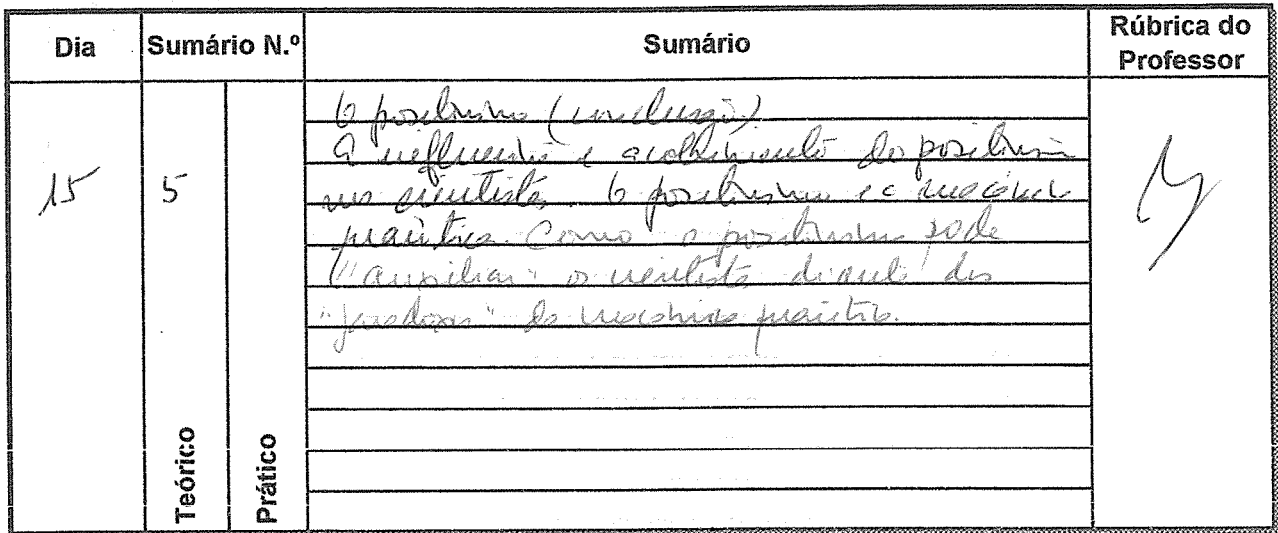 Dia Sumário N.º Sumário Rúbrica do Professor
15 5
O positivismo (conclusão).
A influência e acolhimento do positivismo
nos cientistas. O positivismo e a mecânica
quântica. Como o positivismo pode
"auxiliar" o cientista diante dos
"paradoxos" da mecânica quântica.
Teórico
Prático